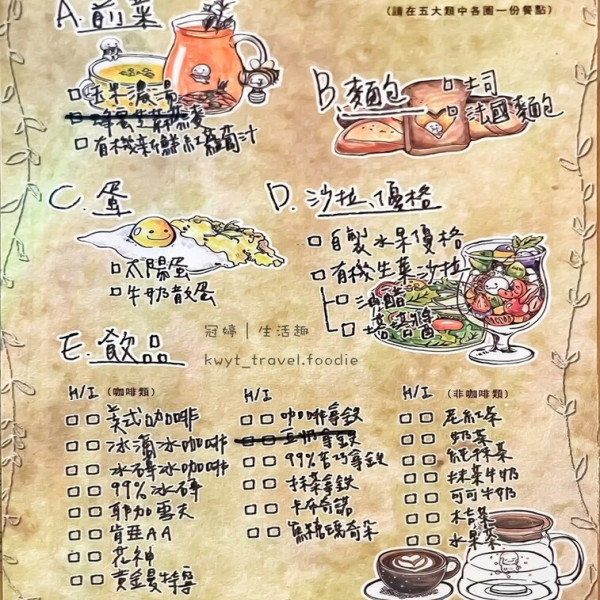 (請在五大類中各圈一份餐點)
A. 前菜
□ 玉米濃湯
□ 有機新鮮紅蘿蔔汁
B. 麵包
□ 土司
□ 法國麵包
C. 蛋
□ 太陽蛋
□ 牛奶散蛋
D. 沙拉、優格
□ 自製水果優格
□ 有機生菜沙拉
□ 油醋
□ 塔塔醬
冠婷｜生活趣
kwyt_travel.foodie
E. 飲品
H/I (咖啡類)
□ □ 美式咖啡
□ □ 冰滴冰咖啡
□ □ 冰磚冰咖啡
□ □ 99%冰磚
□ □ 耶加雪夫
□ □ 肯亞AA
□ □ 花神
□ □ 黃金曼特寧
H/I
□ □ 咖啡拿鐵
□ □ 豆奶拿鐵
□ □ 99%苦巧拿鐵
□ □ 抹茶拿鐵
□ □ 卡布奇諾
□ □ 焦糖瑪奇朵
H/I (非咖啡類)
□ □ 尼紅茶
□ □ 奶茶
□ □ 純抹茶
□ □ 抹茶牛奶
□ □ 可可牛奶
□ □ 桔茶
□ □ 水果茶